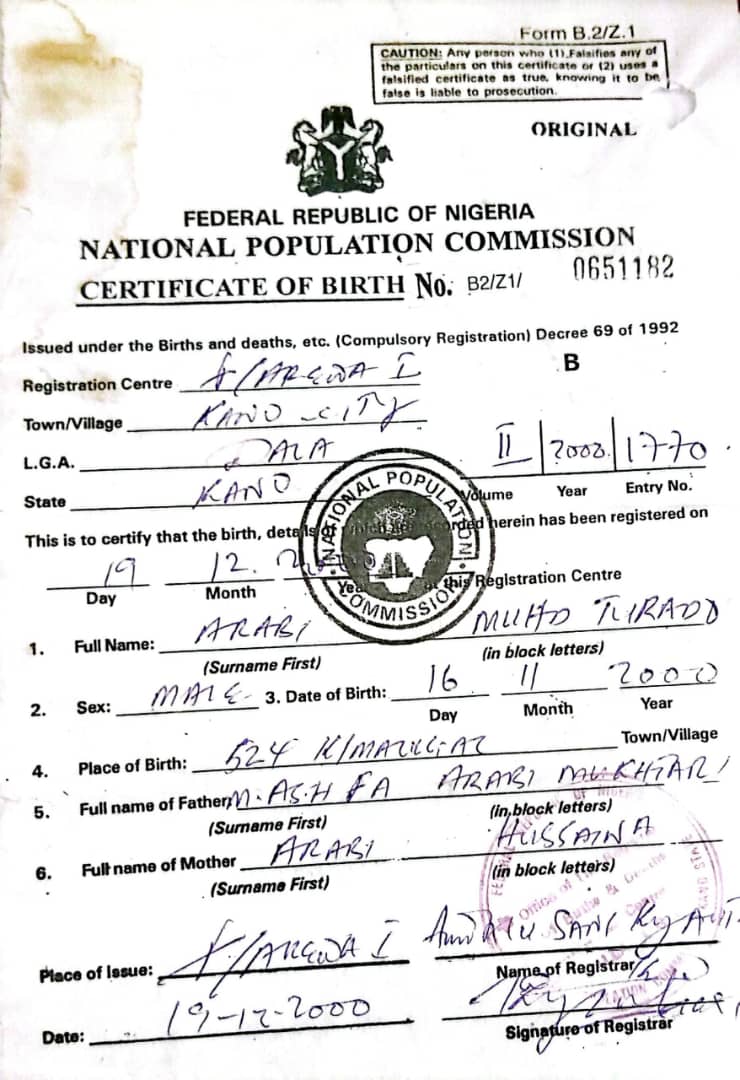 Form B.2/Z.1
CAUTION: Any person who (1) Falsifies any of
the particulars on this certificate or (2) uses a
falsified certificate as true, knowing it to be
false is liable to prosecution.
ORIGINAL
FEDERAL REPUBLIC OF NIGERIA
NATIONAL POPULATION COMMISSION
CERTIFICATE OF BIRTH No. B2/Z1/ 0651182
Issued under the Births and deaths, etc. (Compulsory Registration) Decree 69 of 1992
Registration Centre /AREWA I B
Town/Village KANO CITY
L.G.A. DALA II 2000 1770
State KANO Volume Year Entry No.
NATIONAL POPULATION COMMISSION
This is to certify that the birth, details which are recorded herein has been registered on
19 12. 2000
Day Month Year at this Registration Centre
1. Full Name: ARABI MUHD TIRADO
(Surname First) (in block letters)
2. Sex: MALE 3. Date of Birth: 16 11 2000
Day Month Year
4. Place of Birth: 524 Town/Village
5. Full name of Father ARABI MUKHTARI
(Surname First) (in block letters)
6. Full name of Mother ARABI HUSSAINA
(Surname First) (in block letters)
Place of Issue: /AREWA I SANI
Name of Registrar
Date: 19-12-2000
Signature of Registrar